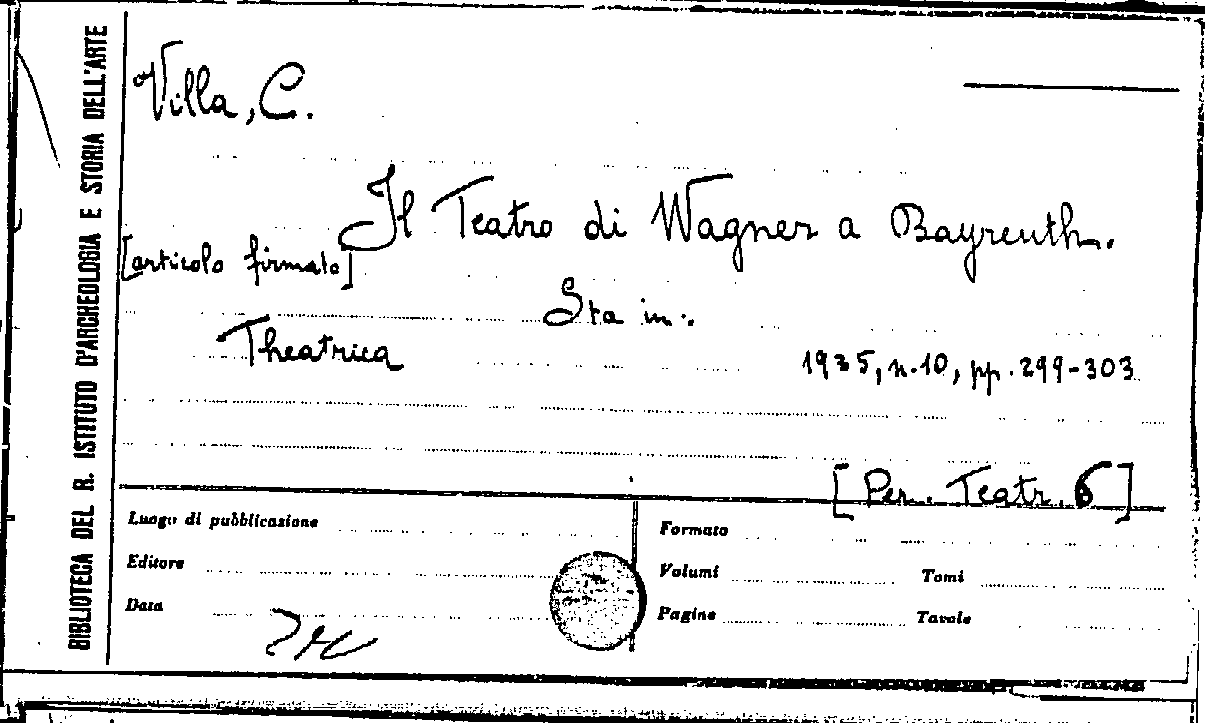 BIBLIOTECA DEL R. ISTITUTO D'ARCHEOLOGIA E STORIA DELL'ARTE
Villa, C.
Il Teatro di Wagner a Bayreuth.
[articolo firmato]
Sta in:
Theatrica 1935, n.10, pp. 299-303
[Per. Teatr. 6]
Luogo di pubblicazione
Formato
Editore
Volumi Tomi
Data
Pagine Tavole